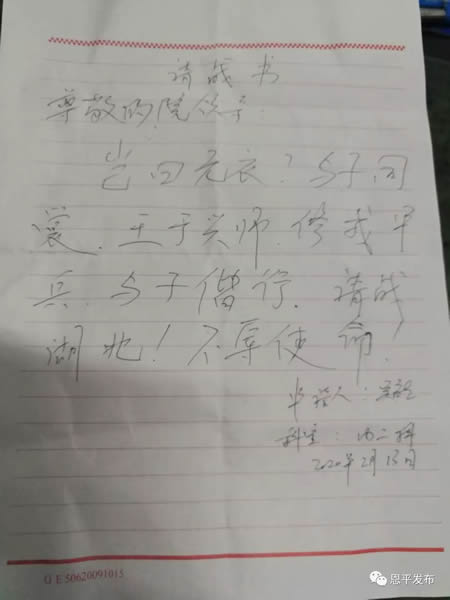 请战书
尊敬的院领导:
岂曰无衣?与子同
裳.王于兴师.修我甲
兵.与子偕行.请战
湖北!不辱使命!
申请人:
科室:内二科
2020年2月13日
G E 50620091015
恩平发布